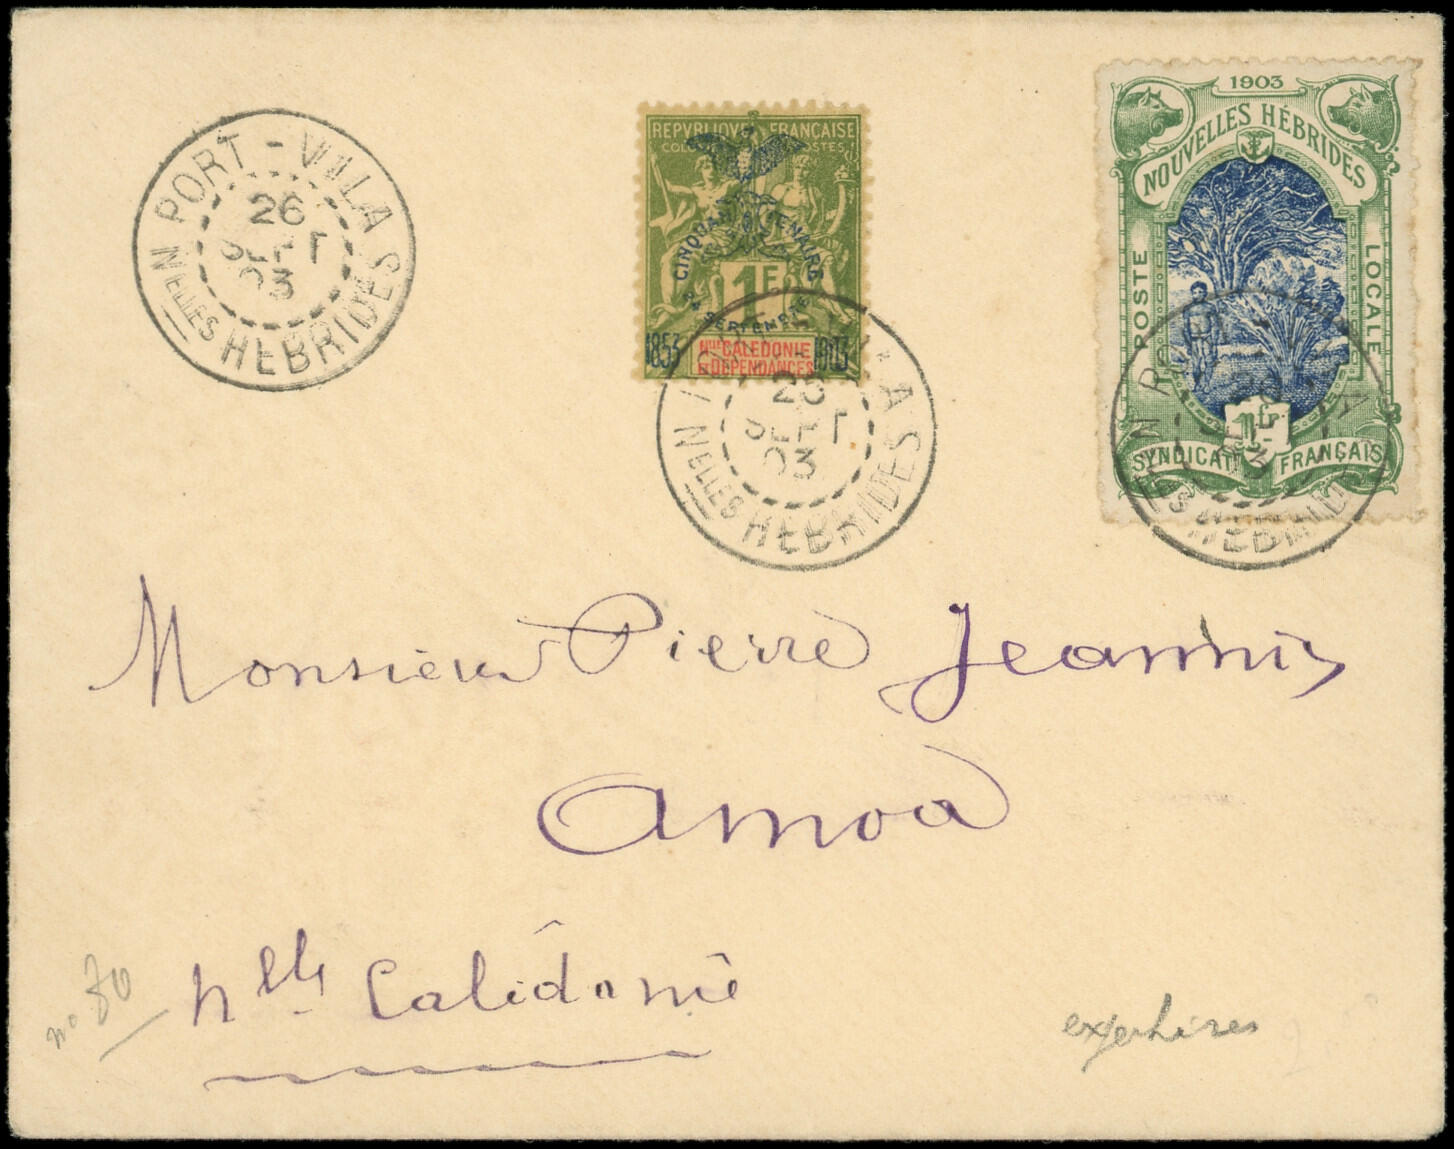 PORT-VILA
26
SEPT
03
Nelles HEBRIDES
REPUBLIQUE FRANÇAISE
COLONIES POSTES
CINQUANTENAIRE
24 SEPTEMBRE
1853 1903
1F
Nlle CALEDONIE
ET DEPENDANCES
SEPT
03
Nelles HEBRIDES
1903
NOUVELLES HÉBRIDES
POSTE
LOCALE
1fr
SYNDICAT FRANÇAIS
Monsieur Pierre Jeannin
Amoa
Nlle Calédonie
no 80